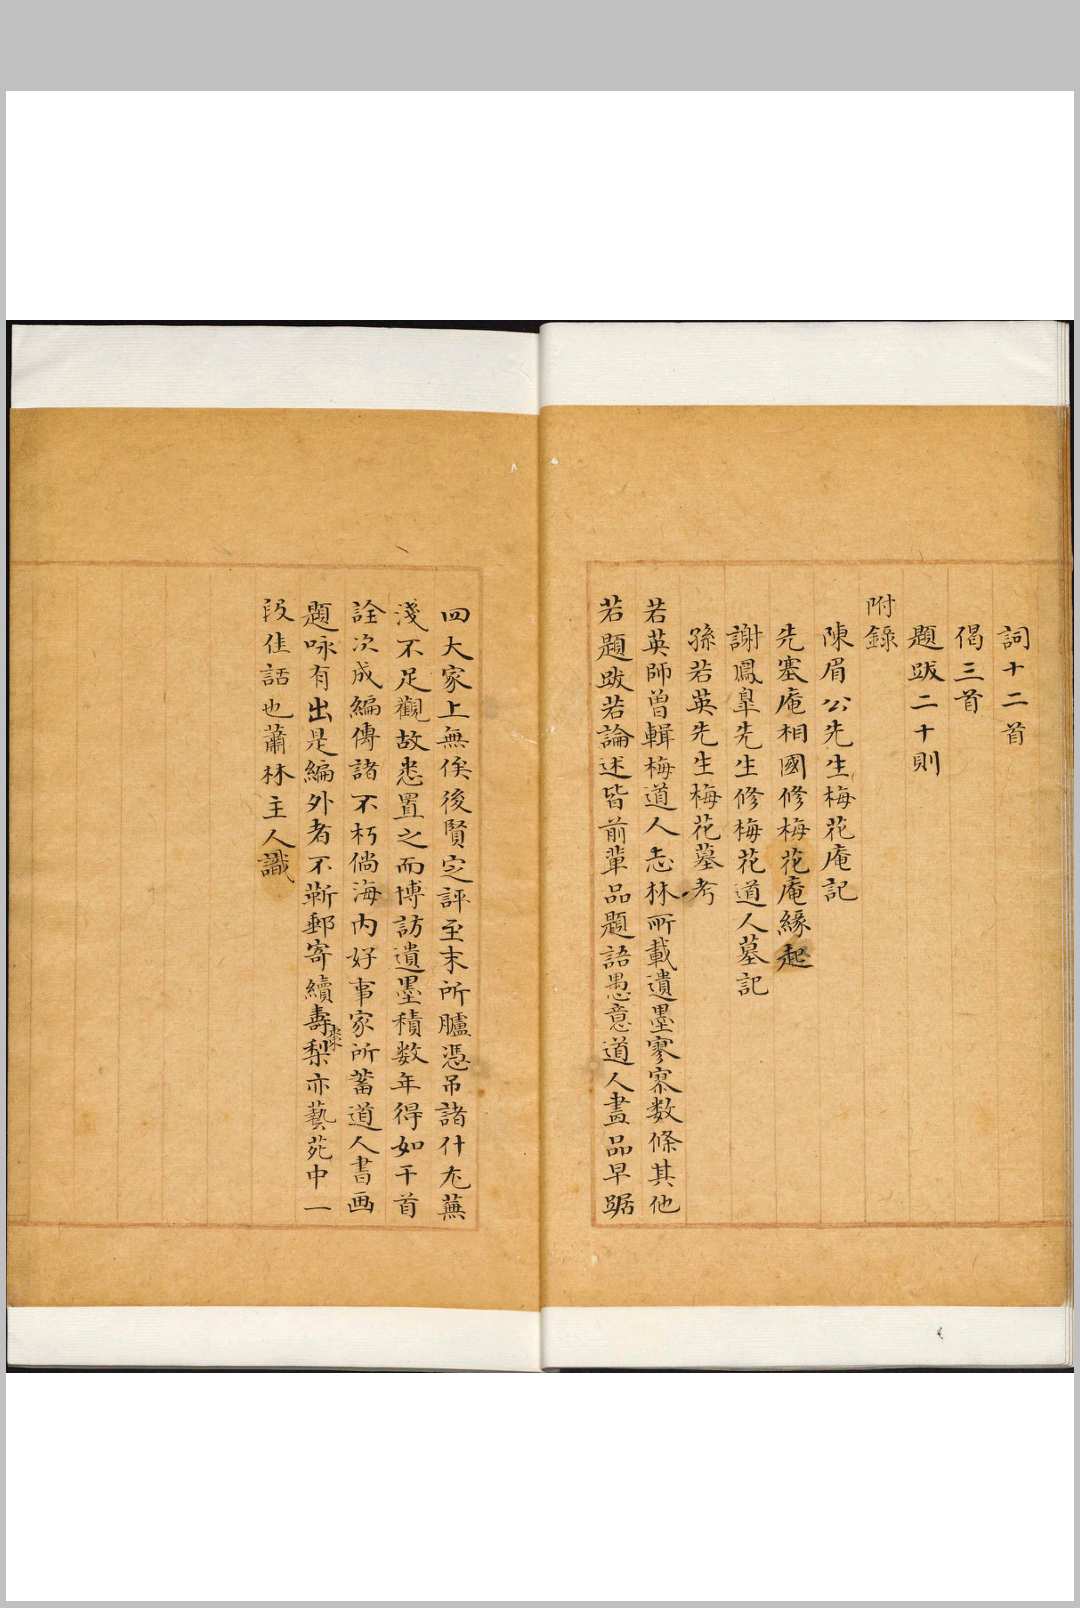 詞十二首
偈三首
題跋二十則
附錄
陳眉公先生梅花庵記
先塞庵相國修梅花庵緣起
謝鳳皐先生修梅花道人墓記
孫若英先生梅花墓考
若英師曽輯梅道人志林所載遺墨寥寥数條其他
若題跋若論述皆前輩品題語愚意道人畫品早踞
四大家上無俟後賢定評至末所臚憑吊諸什尤蕪
淺不足觀故悉置之而博訪遺墨積数年得如干首
詮次成編傳諸不朽倘海内好事家所蓄道人書画
題咏有出是編外者不靳郵寄續壽棗梨亦藝苑中一
段佳話也蕭林主人識